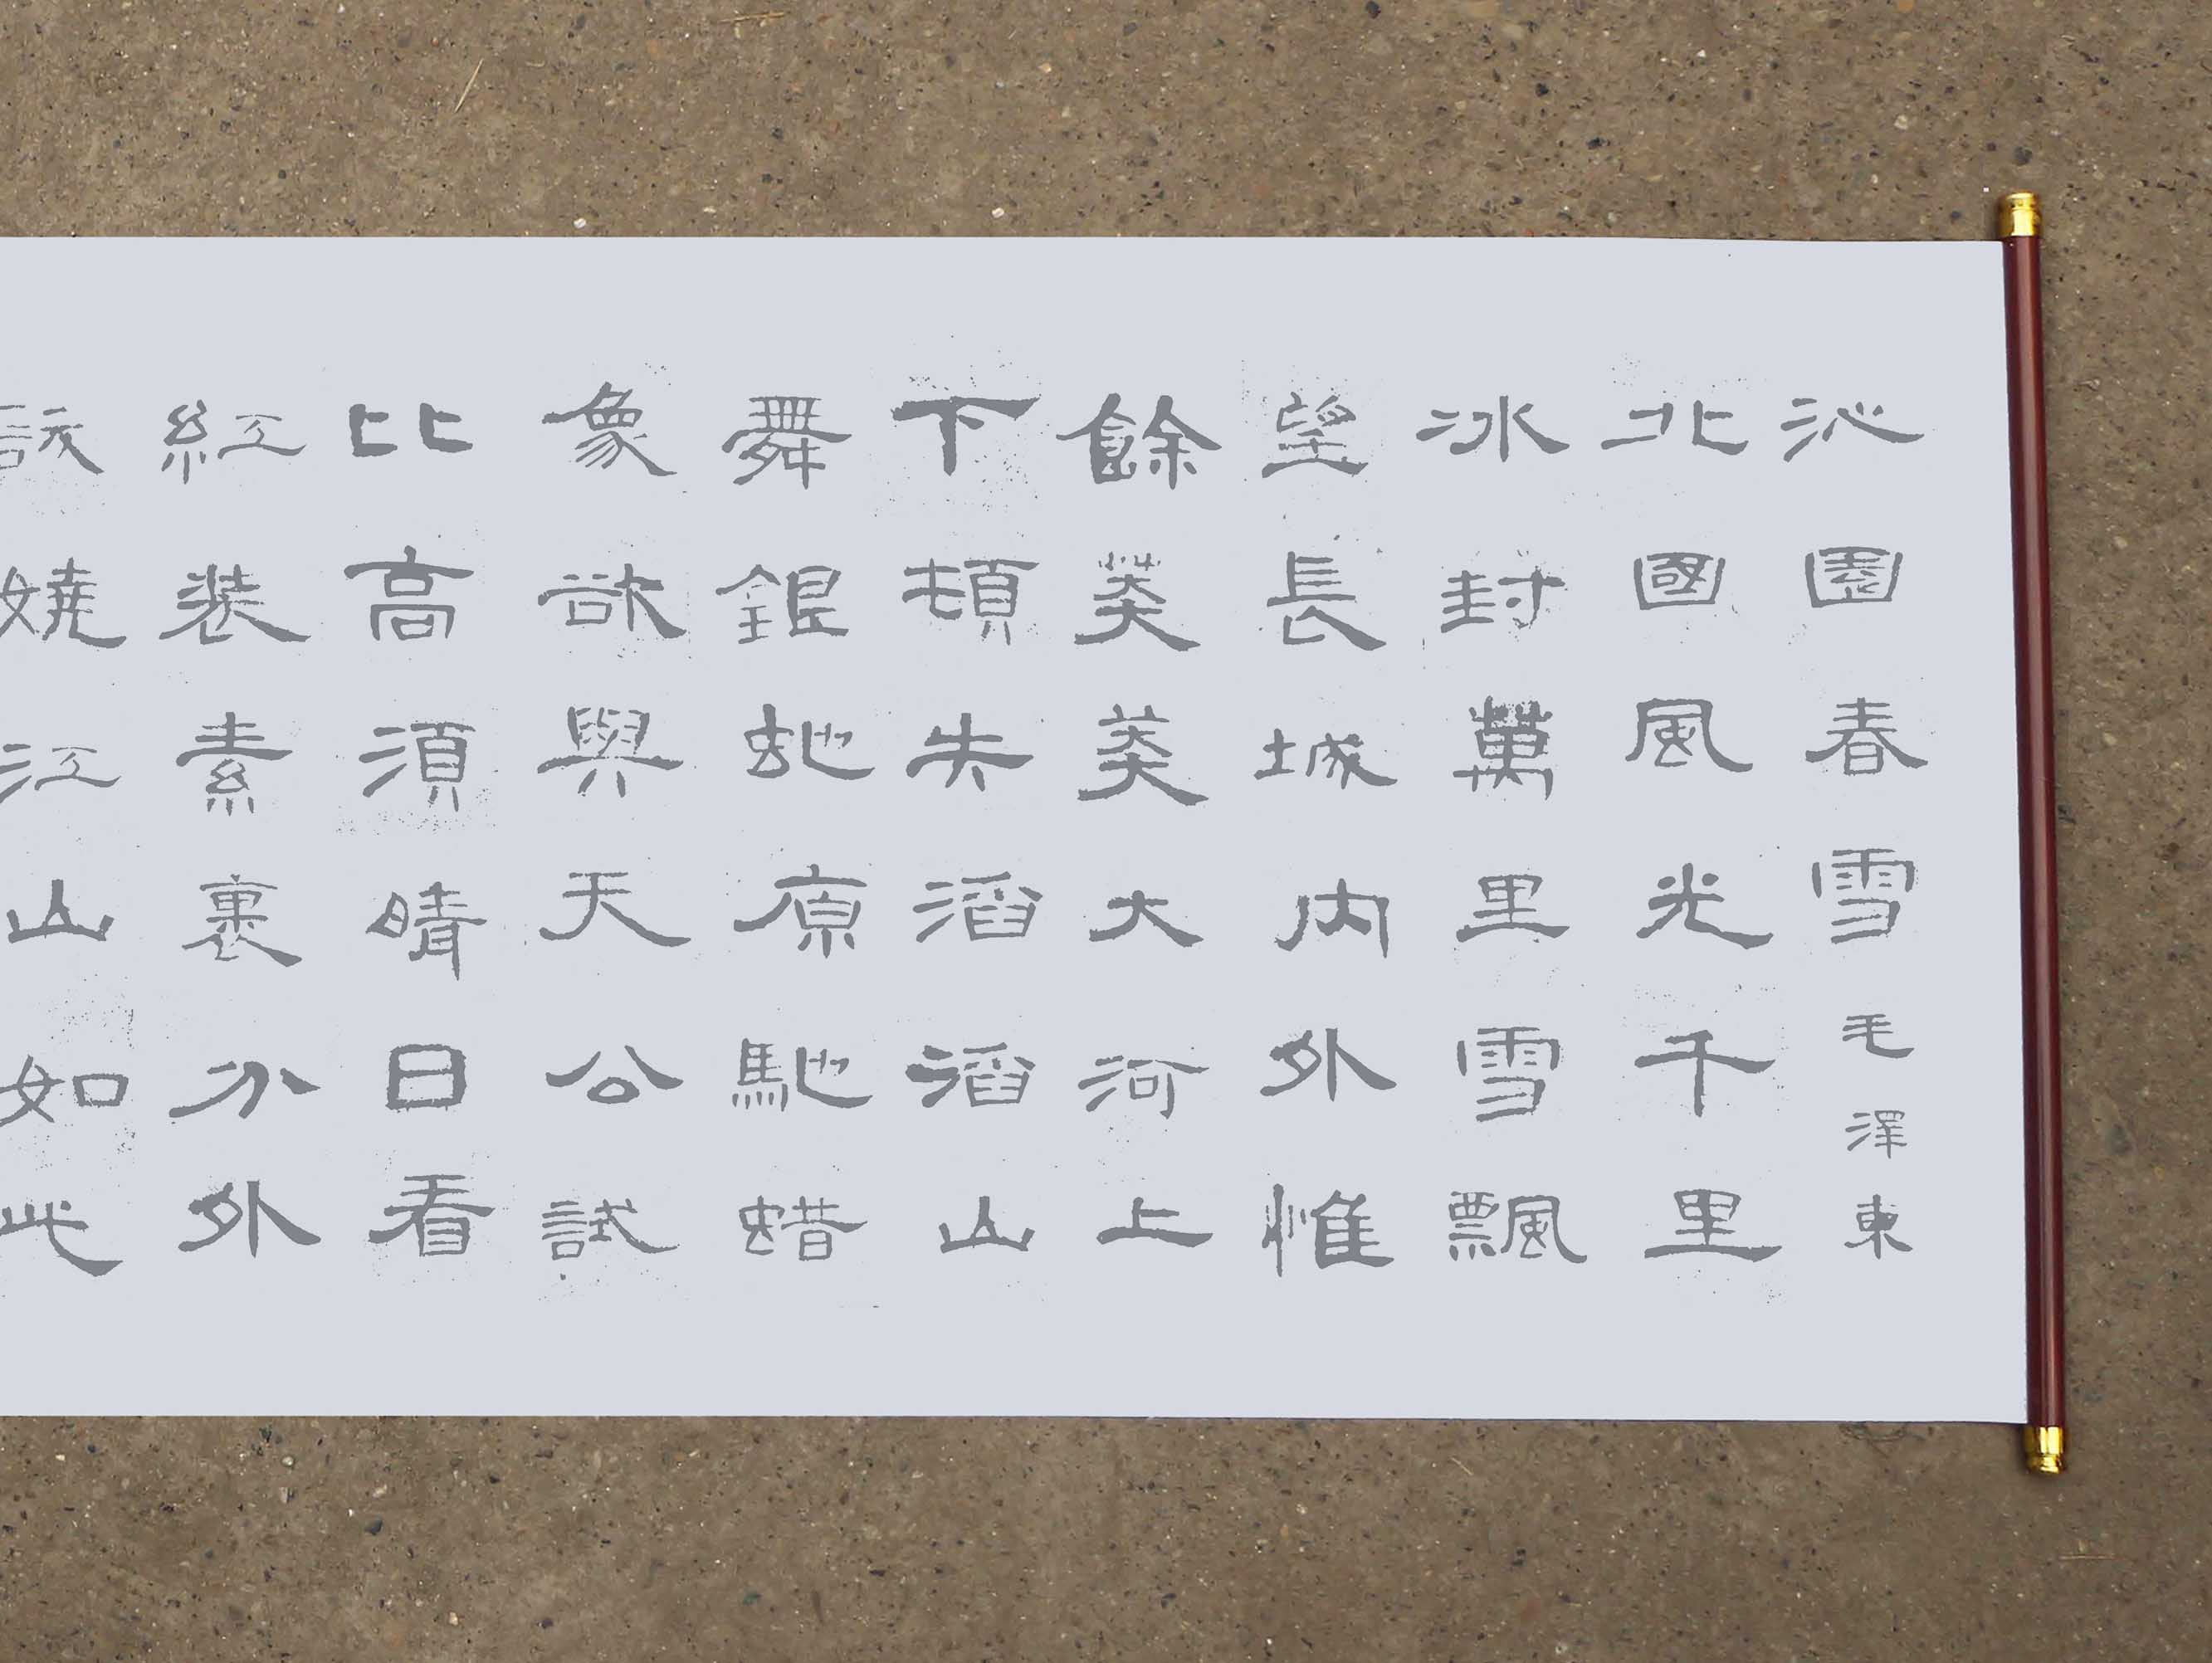 沁園春雪毛澤東
北國風光千里
冰封萬里雪飄
望長城内外惟
餘莽莽大河上
下頓失滔滔山
舞銀虵原馳蜡
象欲與天公試
比高須晴日看
紅装素裏分外
訞嬈江山如此